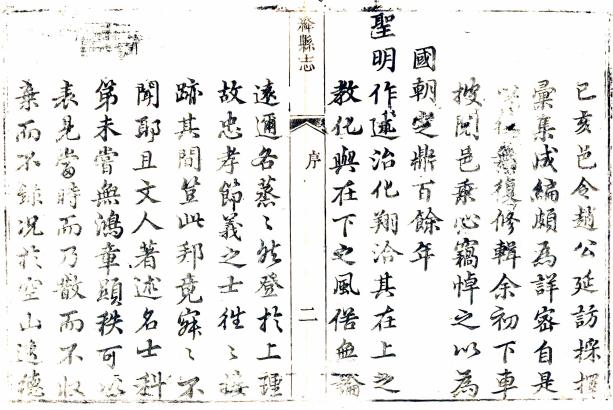 己亥邑令趙公延訪採摭
彙集成編頗為詳密自是
無復修輯余初下車
披閱邑乘心竊悼之以為
國朝定鼎百餘年
聖明作治化翔洽其在上之
教化與在下之風俗無論
絳縣志
序
二
遠邇各蒸〻然登於上理
故忠孝節義之士徃〻接
跡其間豈此邦竟寂〻不
聞耶且文人著述名士科
第未嘗無鴻章顯秩可
表見當時而乃散而不收
棄而不錄况於空山遺德